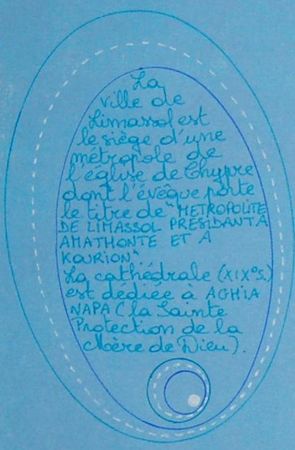 La
ville de
Limassol est
le siège d'une
métropole de
l'église de Chypre
dont l'évêque porte
le titre de "METROPOLITE
DE LIMASSOL PRESIDANT A
AMATHONTE ET A
KOURION"
La cathédrale (XIXe s.)
est dédiée à AGHIA
NAPA (la Sainte
Protection de la
Mère de Dieu).